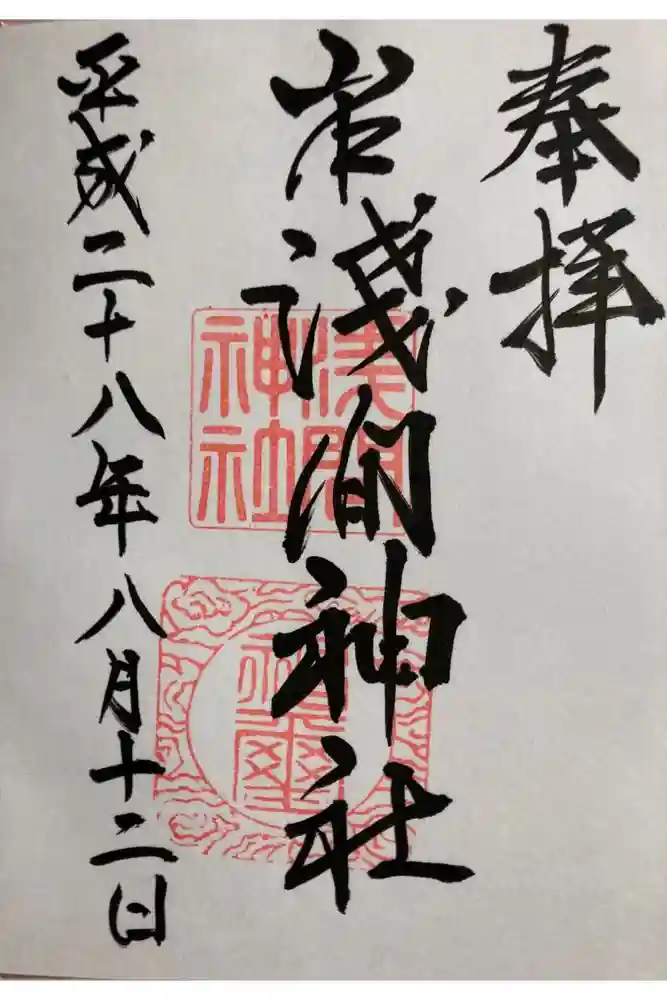 奉拝
浅間神社
平成二十八年八月十二日
浅間
神社